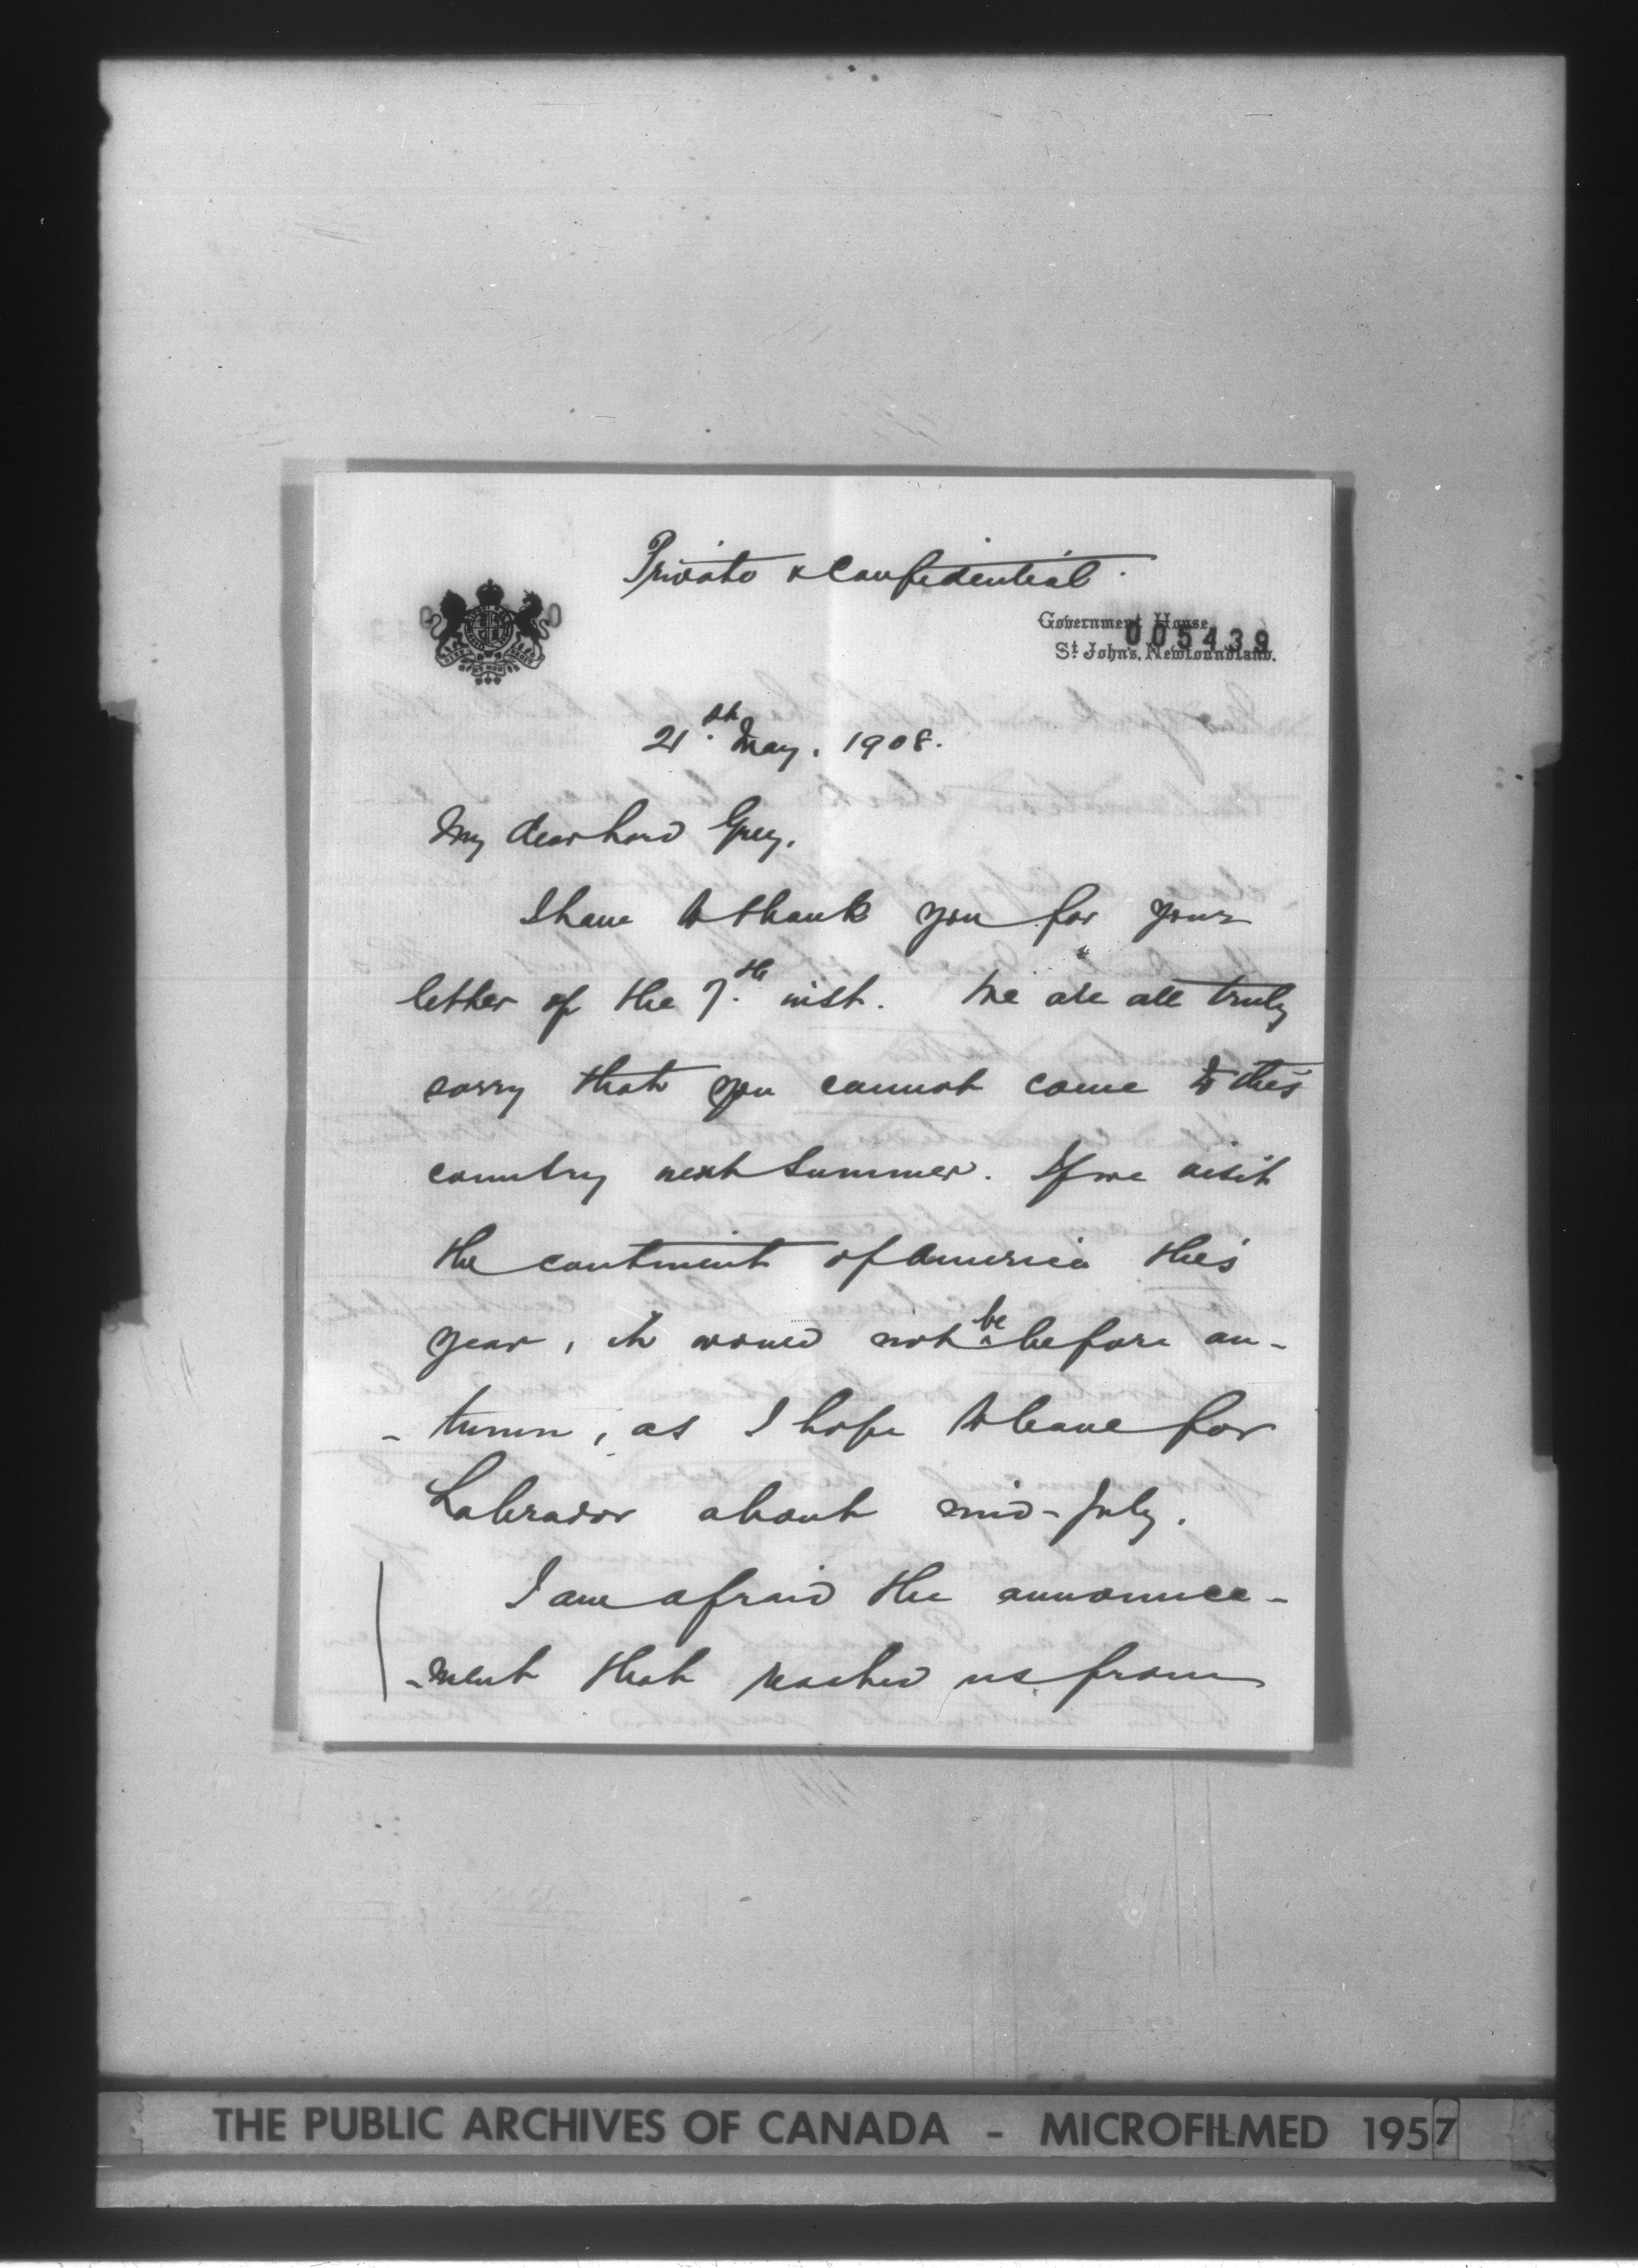 Private & Confidential.
Government House,
005439
St. John's, Newfoundland.
21st May, 1908.
My dear Lord Grey,
I have to thank you for your
letter of the 7th inst. We are all truly
sorry that you cannot come to this
country next Summer. If we visit
the continent of America this
year, it would not be before au-
- tumn, as I hope to leave for
Labrador about mid-July.
I am afraid the announce-
-ment that reached us from
THE PUBLIC ARCHIVES OF CANADA - MICROFILMED 1957